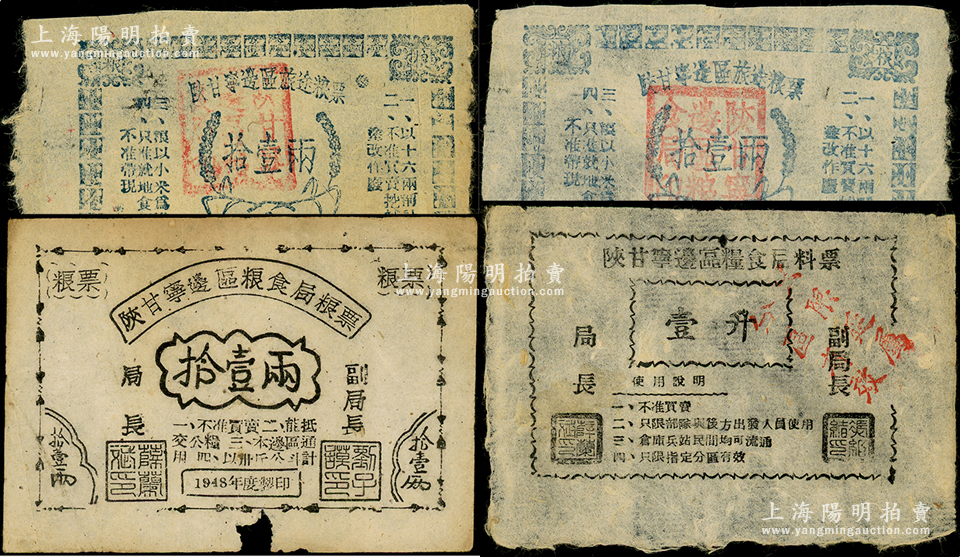 上海陽明拍賣
www.yangmingauction.com
陝甘寧邊區旅途粮票
拾壹兩
一、以十六兩
二、不准買賣
塗改作廢
三、粮以小米為
四、只准就地食
不准帶現
上海陽明拍賣
www.yangmingauction.com
陝甘寧邊區旅途粮票
拾壹兩
一、以十六兩
二、不准買賣
塗改作廢
三、粮以小米為
四、只准就地食
不准帶現
粮票
粮票
陝甘寧邊區粮食局粮票
拾壹兩
局長
副局長
一、不准買賣二、能抵
交公糧 三、本邊區通
用 四、以
計
拾壹兩
拾壹兩
1948年度製印
上海陽明拍賣
www.yangmingauction.com
陝甘寧邊區糧食局料票
壹升
局長
副局長
使用說明
一、不准買賣
二、只限部隊與後方出發人員使用
三、倉庫兵站民間均可流通
四、只限指定分區有效
上海陽明拍賣
www.yangmingauction.com
上海陽明拍賣
www.yangmingauction.com